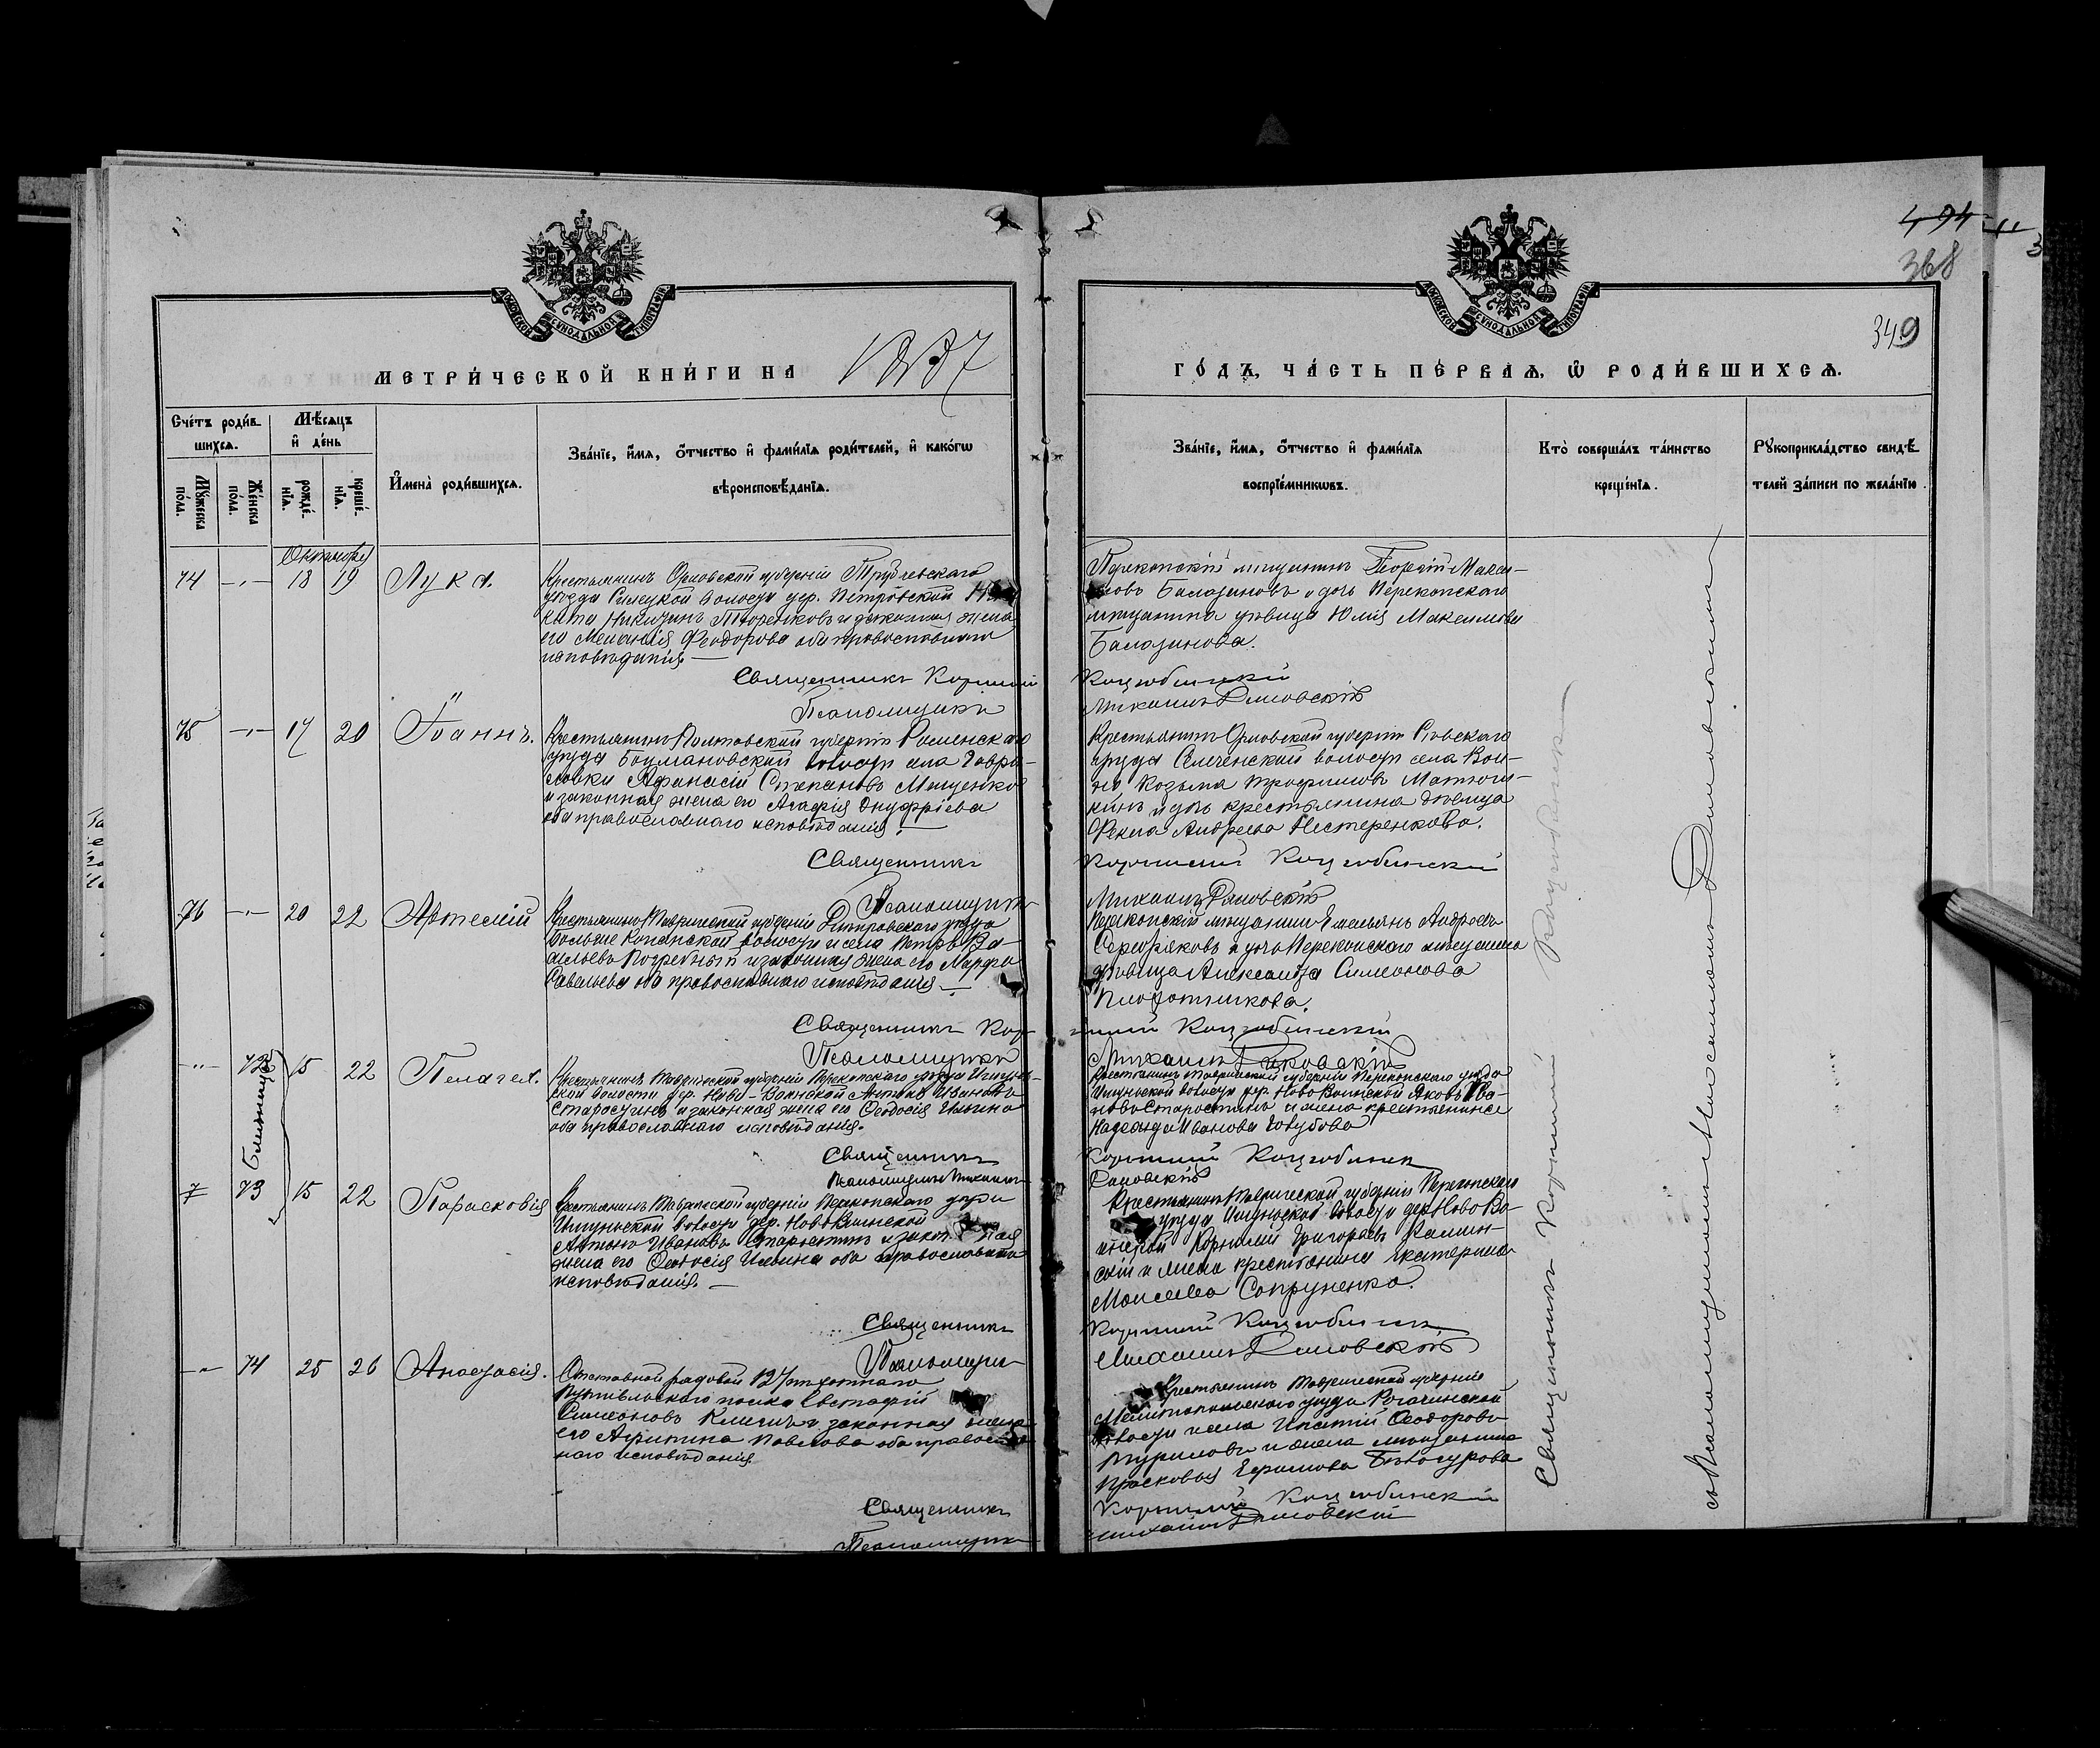 494
368
349
МОСКОВСКОЙ СѴНОДАЛЬНОЙ ТИПОГРАФІИ
МОСКОВСКОЙ СѴНОДАЛЬНОЙ ТИПОГРАФІИ
МЕТРИ́ЧЕСКОЙ КНИ́ГИ НА 1887
ГО́ДЪ, ЧА́СТЬ ПЕ́РВАѦ, Ѡ҆ РОДИ́ВШИХСѦ.
Сче́тъ роди́в-
шихсѧ.
Мꙋ́жеска
по́ла.
Же́нска
по́ла.
Мѣ́сѧцъ
и҆ де́нь
рожде́-
нїѧ.
креще́-
нїѧ.
И҆мена̀ роди́вшихсѧ.
Зва́нїе, и҆́мѧ, ѻ҆́тчество и҆ фами́лїѧ роди́телей, и҆ како́гѡ
вѣроисповѣ́данїѧ.
Зва́нїе, и҆́мѧ, ѻ҆́тчество и҆ фами́лїѧ
воспрїе́мникѡвъ.
Кто̀ соверша́лъ та́инство
креще́нїѧ.
Рꙋкоприкла́дство свидѣ́-
телей за́писи по жела́нїю.
Октября
74 -"- 18 19 Лука.
Крестьянинъ Орловской губерніи Трубчевскаго
уѣзда Селецкой волости дер. Петровской Ни-
кита Никитинъ Тюренковъ и законная жена
его Меланія Ѳеодорова оба православнаго
исповѣданія.—
Священникъ Корнилій
Псаломщикъ
Перекопскій мѣщанинъ Георгій Макси-
мовъ Балазановъ и дочь Перекопскаго
мѣщанина дѣвица Юлія Максимова
Балазанова.
Коцюбинскій
Михаилъ Дымовскій
75 -"- 17 20 Іоаннъ.
Крестьянинъ Полтавской губерніи Роменскаго
уѣзда волости села Гаври-
ловки Афанасій Степановъ Мищенко
и законная жена его Агафія Онуфріева
оба православнаго исповѣданія.—
Священникъ
Псаломщикъ
Крестьянинъ Орловской губерніи Сѣвскаго
уѣзда волости села
Козьма Трофимовъ
и дочь крестьянина дѣвица
Фекла Андреева Нестеренкова.
Корнилій Коцюбинскій
Михаилъ Дымовскій
76 -"- 20 22 Артемій
Крестьянинъ Таврической губерніи Днѣпровскаго уѣзда
Больше Копанской волости и села Петръ Ва-
сильевъ Погребный и законная жена его Марфа
Савельева оба православнаго исповѣданія.—
Священникъ Кор-
Псаломщикъ
Перекопскій мѣщанинъ Емельянъ Андреевъ
и дочь Перекопскаго мѣщанина
дѣвица Александра Симеонова
Плотникова.
нилій Коцюбинскій
Михаилъ Дымовскій
-"- 72 15 22 Пелагея.
Близнецы
Крестьянинъ Таврической губерніи Перекопскаго уѣзда Ишунь-
ской волости дер. Ново-Воинской Антонъ Ивановъ
Старостинъ и законная жена его Ѳеодосія Ильина
оба православнаго исповѣданія.
Священникъ
Псаломщикъ Михаилъ
Крестьянинъ Таврической губерніи Перекопскаго уѣзда
Ишуньской волости дер. Ново Воинской Яковъ Ива-
новъ Старостинъ и жена крестьянина
Надежда Иванова Голубова
Корнилій Коцюбинск
Дымовскій
73 15 22 Парасковія
Крестьянинъ Таврической губерніи Перекопскаго уѣзда
Ишуньской волости дер. Ново Воинской
Антонъ Ивановъ Старостинъ и законная
жена его Ѳеодосія Ильина оба православнаго
исповѣданія.—
Священникъ
Псаломщикъ
Крестьянинъ Таврической губерніи Перекопскаго
уѣзда Ишуньской волости дер. Ново Во-
инской Корнилій Григорьевъ
и жена крестьянина Екатерина
Моисеева Сопруненко.
Корнилій Коцюбинск
Михаилъ Дымовскій
-"- 74 25 26 Анастасія.
Отставной рядовой 127 пѣхотнаго
Путивльскаго полка Евстафій
Симеоновъ и законная жена
его Агрипина Павлова оба православ-
наго исповѣданія
Священникъ
Псаломщикъ
Крестьянинъ Таврической губерніи
Мелитопольскаго уѣзда Рогачинской
волости и села Ипатій Ѳеодоровъ
и жена мѣщанина
Прасковья
Корнилій Коцюбинскій
Михаилъ Дымовскій
Священникъ Корнилій Коцюбинскій
съ Псаломщикомъ Михаиломъ Дымовскимъ